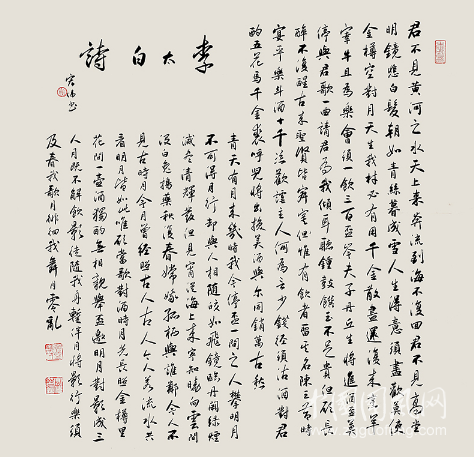 君不見黃河之水天上來奔流到海不復回君不見高堂
明鏡悲白髮朝如青絲暮成雪人生得意須盡歡莫使
金樽空對月天生我材必有用千金散盡還復來烹羊
宰牛且為樂會須一飲三百杯岑夫子丹丘生將進酒莫
停與君歌一曲請君為我傾耳聽鐘鼓饌玉不足貴但願長
醉不復醒古來聖賢皆寂寞但惟有飲者留其名陳王昔時
宴平樂斗酒十千恣歡謔主人何為言少錢徑須沽酒對君
酌五花馬千金裘呼兒將出換美酒與爾同銷萬古愁
李太白詩
青天有月來幾時我今停杯一問之人攀明月
不可得月行卻與人相隨皎如飛鏡臨丹闕綠煙
滅盡清輝發但見宵從海上來寧知曉向雲間
沒白兔搗藥秋復春嫦娥孤栖與誰鄰今人不
見古時月今月曾經照古人古人今人若流水共
看明月皆如此唯願當歌對酒時月光長照金樽裏
花間一壺酒獨酌無相親舉杯邀明月對影成三
人月既不解飲影徒隨我身暫伴月將影行樂須
及春我歌月徘徊我舞月零亂